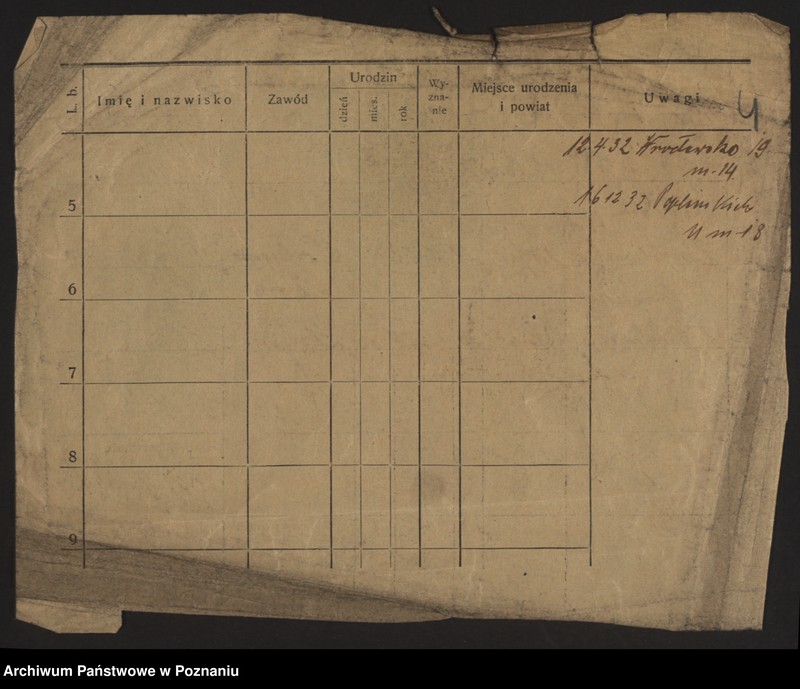 L. b.
Imię i nazwisko
Zawód
Urodzin
dzień
mies.
rok
Wy-
zna-
nie
Miejsce urodzenia
i powiat
Uwagi
4
12.4.32 19
m-14
16 12 32
11 m-18
5
6
7
8
9
Archiwum Państwowe w Poznaniu